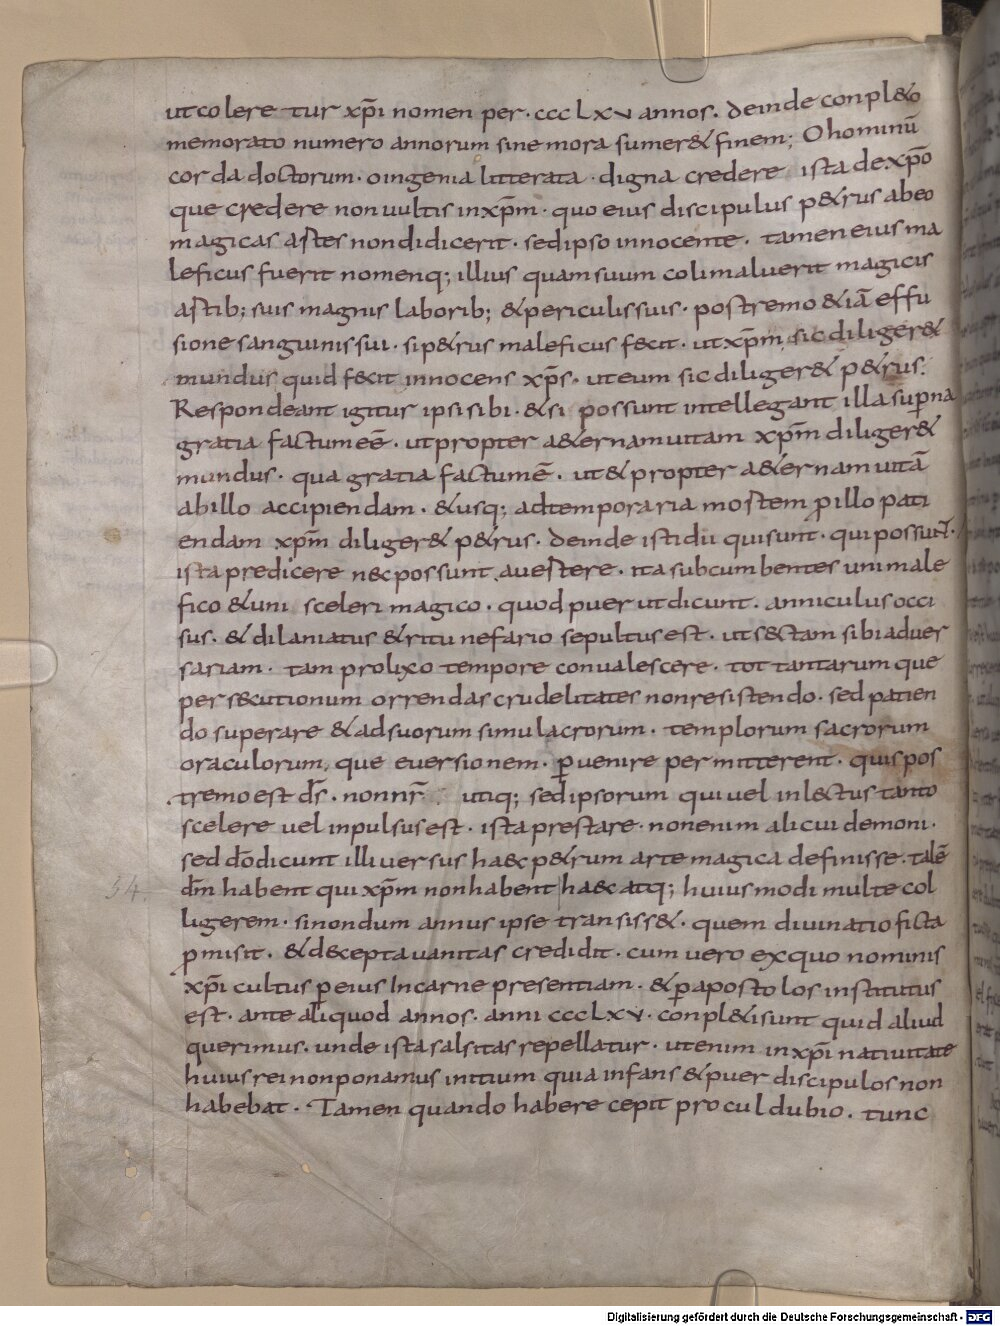 ut colere tur xp̄i nomen per · ccc Lxv annos. deinde conpl&o
memorato numero annorum sine mora sumer& finem; O hominū
cor da doctorum · o ingenia litterata · digna credere ista de xp̄o
que credere non uultis in xp̄m · quo eius discipulus p&rus ab eo
magicas artes non didicerit · sed ipso innocente · tamen eius ma
leficus fuerit nomenq; illius quam suum coli maluerit magicis
artib; suis magnis laborib; & periculis suis · postremo & iā effu
sione sanguinis sui · si p&rus maleficus fecit · ut xp̄m sic diliger&
mundus quid fecit innocens xp̄s · ut eum sic diliger& p&rus.
Respondeant igitur ipsi sibi · & si possunt intellegant illa sup̄na
gratia factum eē · ut propter a&ernam uitam xp̄m diliger&
mundus · qua gratia factum ē · ut & propter a&ernam uitā
ab illo accipiendam · & usq; ad temporaria mortem p̱ illo pati
endam xp̄m diliger& p&rus · deinde isti dii qui sunt · qui possunt ·
ista predicere nec possunt auertere · ita subcumbentes uni male
fico & uni sceleri magico · quod puer ut dicunt · anniculus occi
sus · & dilaniatus & ritu nefario sepultus est · ut sectam sibi aduer
sariam · tam prolixo tempore conualescere · tot tantarum que
persecutionum orrendas crudelitates non resistendo · sed patien
do superare & ad suorum simulacrorum · templorum sacrorum
oraculorum, que euersionem · p̱uenire permitterent · quis pos
tremo est d̄s · non nr̄ utiq; sed ipsorum qui uel inlectus tanto
scelere uel inpulsus est · ista prestare · non enim alicui demoni ·
sed d̄o dicunt illi uersus haec p&rum arte magica definisse · talē
d̄m habent qui xp̄m non habent haec atq; huiusmodi multe col
ligerem · si nondum annus ipse transiss& · quem diuinatio ficta
p̱misit · & decepta uanitas credidit · cum uero ex quo nominis
xp̄i cultus p̱ eius Incarne presentiam · & p̱ apostolos institutus
est · ante aliquod annos · anni ccc Lxv · conpl&i sunt quid aliud
querimus · unde ista salsitas repellatur · ut enim in xp̄i natiuitate
huius rei non ponamus initium quia infans & puer discipulos non
habebat · Tamen quando habere cepit procul dubio · tunc
54
Digitalisierung gefördert durch die Deutsche Forschungsgemeinschaft - DFG